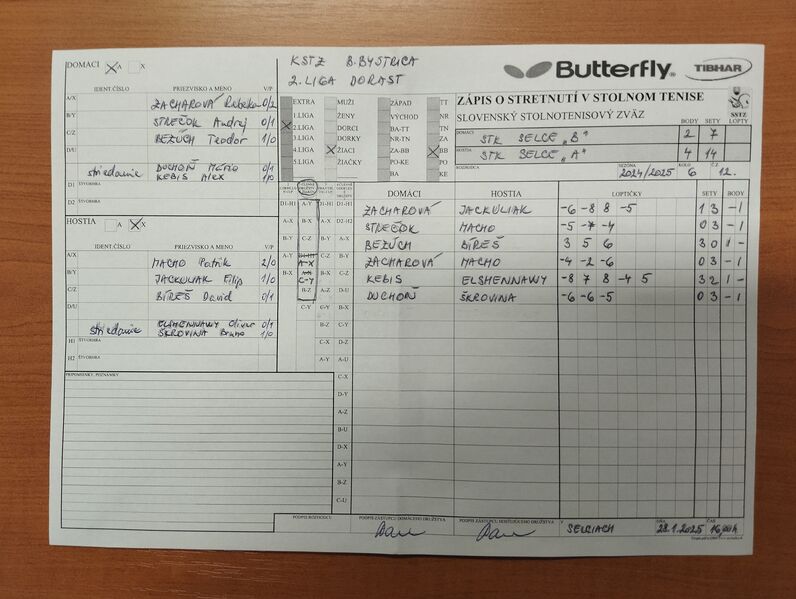 DOMÁCI A X
KSTZ B.BYSTRICA
2. LIGA DORAST
Butterfly
TIBHAR
ZÁPIS O STRETNUTÍ V STOLNOM TENISE
SLOVENSKÝ STOLNOTENISOVÝ ZVÄZ
SSTZ
LOPTY
IDENT.ČÍSLO PRIEZVISKO A MENO V/P
A/X ZACHAROVÁ Rebeka 0/2
B/Y STREČOK Andrej 0/1
C/Z BEZÚCH Teodor 1/0
D/U
striedanie DUCHOŇ Mário 0/1
KEBIS Alex 1/0
D1 ŠTVORHRA
D2
EXTRA MUŽI ZÁPAD TT
1.LIGA ŽENY VÝCHOD NR
2.LIGA DORCI BA-TT TN
3.LIGA DORKY NR-TN ZA
4.LIGA ŽIACI ZA-BB BB
5.LIGA ŽIAČKY PO-KE PO
BA KE
DOMÁCI STK SELCE „B" BODY 2 SETY 7
HOSTIA STK SELCE „A" 4 14
ROZHODCA SEZÓNA 2024/2025 KOLO 6 Č.Z. 12.
HOSTIA A X
IDENT.ČÍSLO PRIEZVISKO A MENO V/P
A/X MACHO Patrik 2/0
B/Y JACKULIAK Filip 1/0
C/Z BÍREŠ David 0/1
D/U
striedanie ELSHENNAWY Oliver 0/1
ŠKROVINA Bruno 1/0
H1 ŠTVORHRA
H2
PRIPOMIENKY, POZNÁMKY
DOMÁCI HOSTIA LOPTIČKY SETY BODY
ZACHAROVÁ JACKULIAK -6 -8 8 -5 1 3 -1
STREČOK MACHO -5 -7 -4 0 3 -1
BEZÚCH BÍREŠ 3 5 6 3 0 1-
ZACHAROVÁ MACHO -4 -2 -6 0 3 -1
KEBIS ELSHENNAWY -8 7 8 -4 5 3 2 1-
DUCHOŇ ŠKROVINA -6 -6 -5 0 3 -1
D1-H1 A-Y D1-H1 D1-H1
A-X B-X A-X D2-H2
B-Y C-Z B-Y A-X
A-Y A-X
B-X C-Y
B-Z A-Z D-U
C-Y A-Y
B-Z C-Y
C-X D-Z
A-Y A-U
C-X
D-Y
A-Z
B-U
D-X
A-Y
B-Z
C-U
PODPIS ROZHODCU PODPIS ZÁSTUPCU DOMÁCEHO DRUŽSTVA PODPIS ZÁSTUPCU HOSŤUJÚCEHO DRUŽSTVA V SELCIACH DŇA 28.1.2025 ČAS